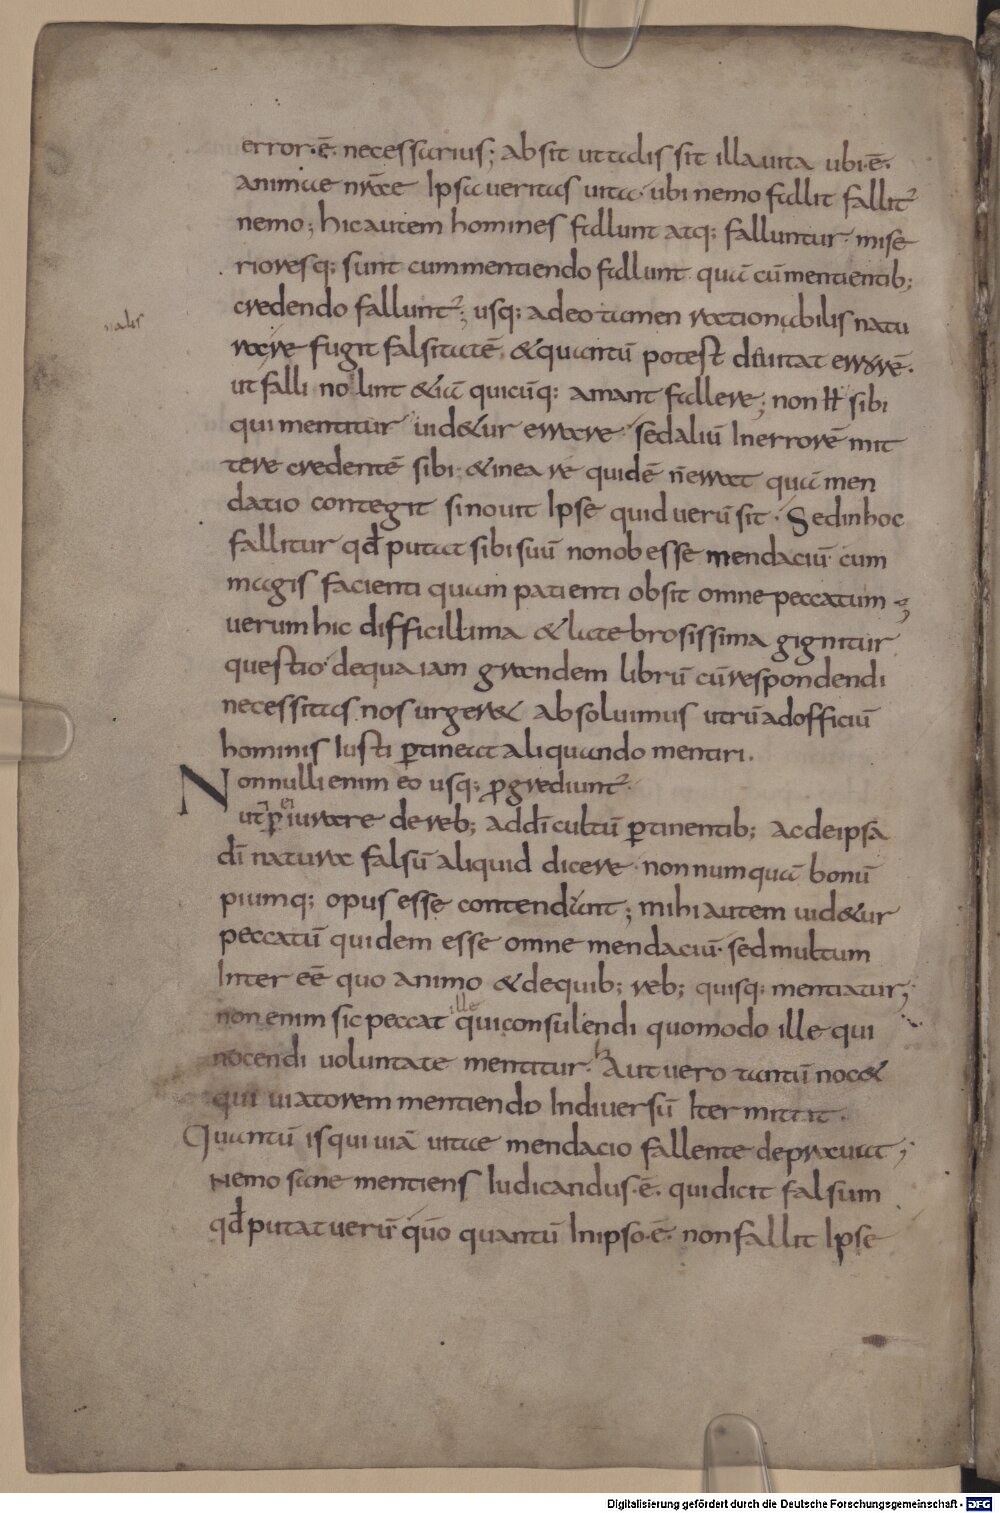 error·ē· necessarius; absit ut talis sit illa uita ubi·ē·
animae nrāe Ipsa ueritas uita· ubi nemo fallit fallit᷑
nemo; hic autem homines fallunt atq; falluntur· mise
rioresq; sunt cum mentiendo fallunt quā cū mentientib;
credendo fallunt᷑; usq; adeo tamen rationabilis natu
rare fugit falsitatē, &quantū potest deuitat errorē·
ut falli nolint &iā quicūq; amant fallere; non ħ sibi
qui mentitur uid&ur errare· sed aliū Inerrorē mit
tere credentē sibi· &inea re quidē n̄ errat quā men
datio contegit si nouit Ipse quid uerū sit· Sed in hoc
fallitur qđ putat sibi suū non obesse mendaciū cum
magis facienti quam patienti obsit omne peccatum;
uerum hic difficillima &latebrosissima gignitur
questio· de qua iam grandem librū cū respondendi
necessitas nos urger& absoluimus utrū ad officiū
hominis Iusti ꝑtineat aliquando mentiri.
Nonnulli enim eo usq; ꝓgrediunt᷑·
ut ꝑeiurare de reb; ad dī cultū ꝑtinentib; ac de ipsa
dī natura falsū aliquid dicere· non numquā bonū
piumq; opus esse contendant; mihi autem uid&ur
peccatū quidem esse omne mendaciū· sed multum
Inter eē quo animo &dequib; reb; quisq; mentiatur;
ille
non enim sic peccat qui consulendi quomodo ille qui
nocendi uoluntate mentitur· Aut uero tantū noc&
qui uiatorem mentiendo Indiuersū Iter mittit·
Quantū is qui uiā uitae mendacio fallente deprauat;
Nemo sane mentiens Iudicandus·ē· qui dicit falsum
qđ putat uerū quo quantū Inipso·ē· non fallit Ipse
Digitalisierung gefördert durch die Deutsche Forschungsgemeinschaft - DFG